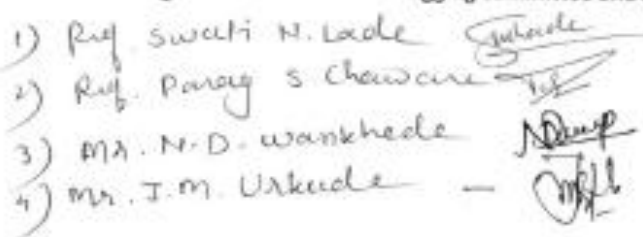 1) Prof. Swati N. Lade
2) Prof. Parag S Chaware
3) Mr. N.D. Wankhede
4) Mr. J.M. Urkude -